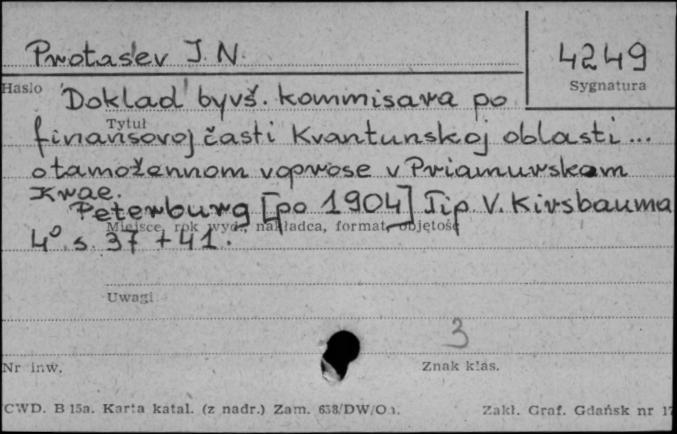 Protas'ev J. N.
4249
Hasło
Sygnatura
Doklad byvš. kommisara po
Tytuł
finansovoj časti Kvantunskoj oblasti...
o tamožennom voprose v Priamurskom
Krae.
Peterburg [po 1904] Tip. V. Kirsbauma
Miejsce, rok wyd., nakładca, format, objętość
4° s. 37 + 41.
Uwagi
3
Nr inw.
Znak klas.
CWD. B 15a. Karta katal. (z nadr.) Zam. 658/DW/O
Zakł. Graf. Gdańsk nr 17